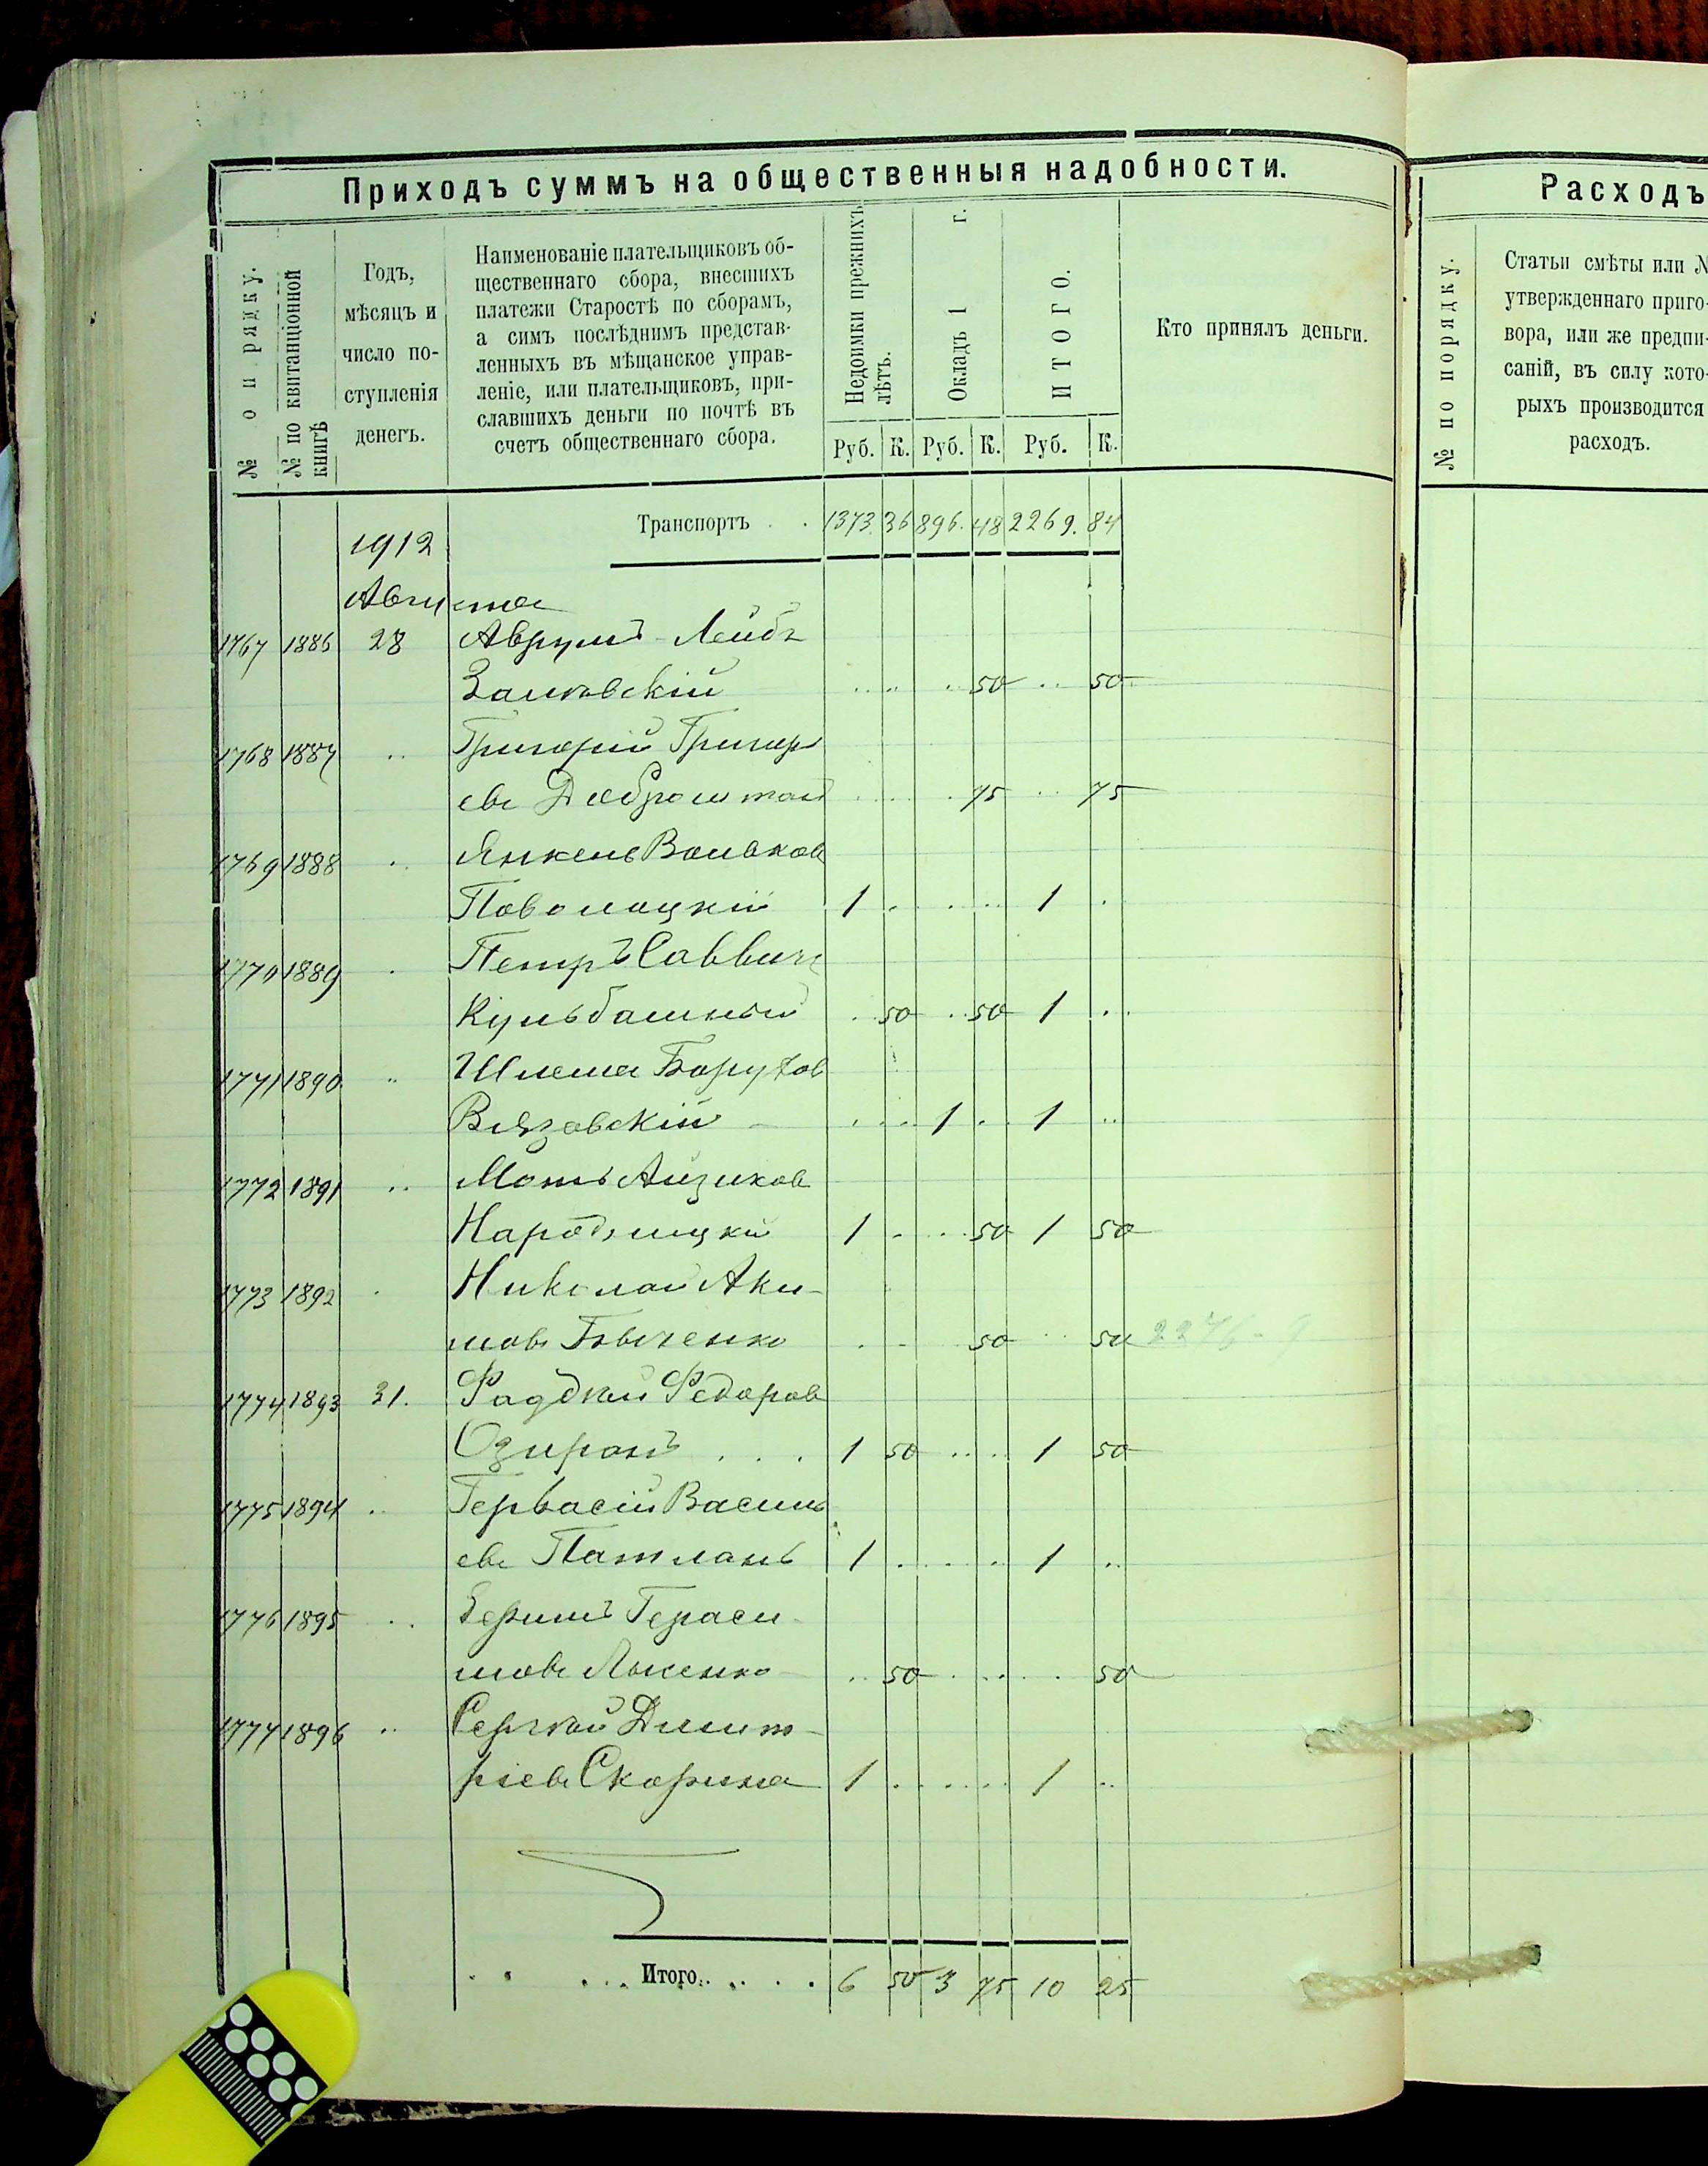 Приходъ суммъ на общественныя надобности.
№ по рядку.
№ по квитанціонной книгѣ
Годъ, мѣсяцъ и число поступленія денегъ.
Наименованіе плательщиковъ об-
щественнаго сбора, внесшихъ
платежи Старостѣ по сборамъ,
а симъ послѣднимъ представ-
ленныхъ въ мѣщанское управ-
леніе, или плательщиковъ, при-
славшихъ деньги по почтѣ въ
счетъ общественнаго сбора.
Недоимки прежнихъ лѣтъ.
Окладъ 1 г.
ИТОГО.
Кто принялъ деньги.
Руб. К. Руб. К. Руб. К.
Транспортъ . . 1373. 36 896. 48 2269. 84
1912
Августа
1767 1886 28 Аврумъ-Лейбъ
Замковскій 50 50
1768 1887 Григорій Григор
евъ 75 75
1769 1888 Янкель Вольков
Поволоцкій 1 1
1770 1889 Петръ Саввичъ
Кульбашный 50 50 1
1771 1890 Шлема Борухов
Вязовскій 1 1
1772 1891 Моть Айзиков
Народицкій 1 50 1 50
1773 1892 Николай Аки-
мовъ 50 50
1774 1893 31. Фаддей Федоров
Озиранъ 1 50 1 50
1775 1894 Гервасій Василь
евъ Патланъ 1 1
1776 1895 Гераси-
мовъ Лысенко 50 50
1777 1896 Сергѣй Димит-
ріевъ Скорина 1 1
Итого 6 50 3 75 10 25
Расходъ
№ по порядку.
Статьи смѣты или №
утвержденнаго приго-
вора, или же предпи-
саній, въ силу кото-
рыхъ производится
расходъ.